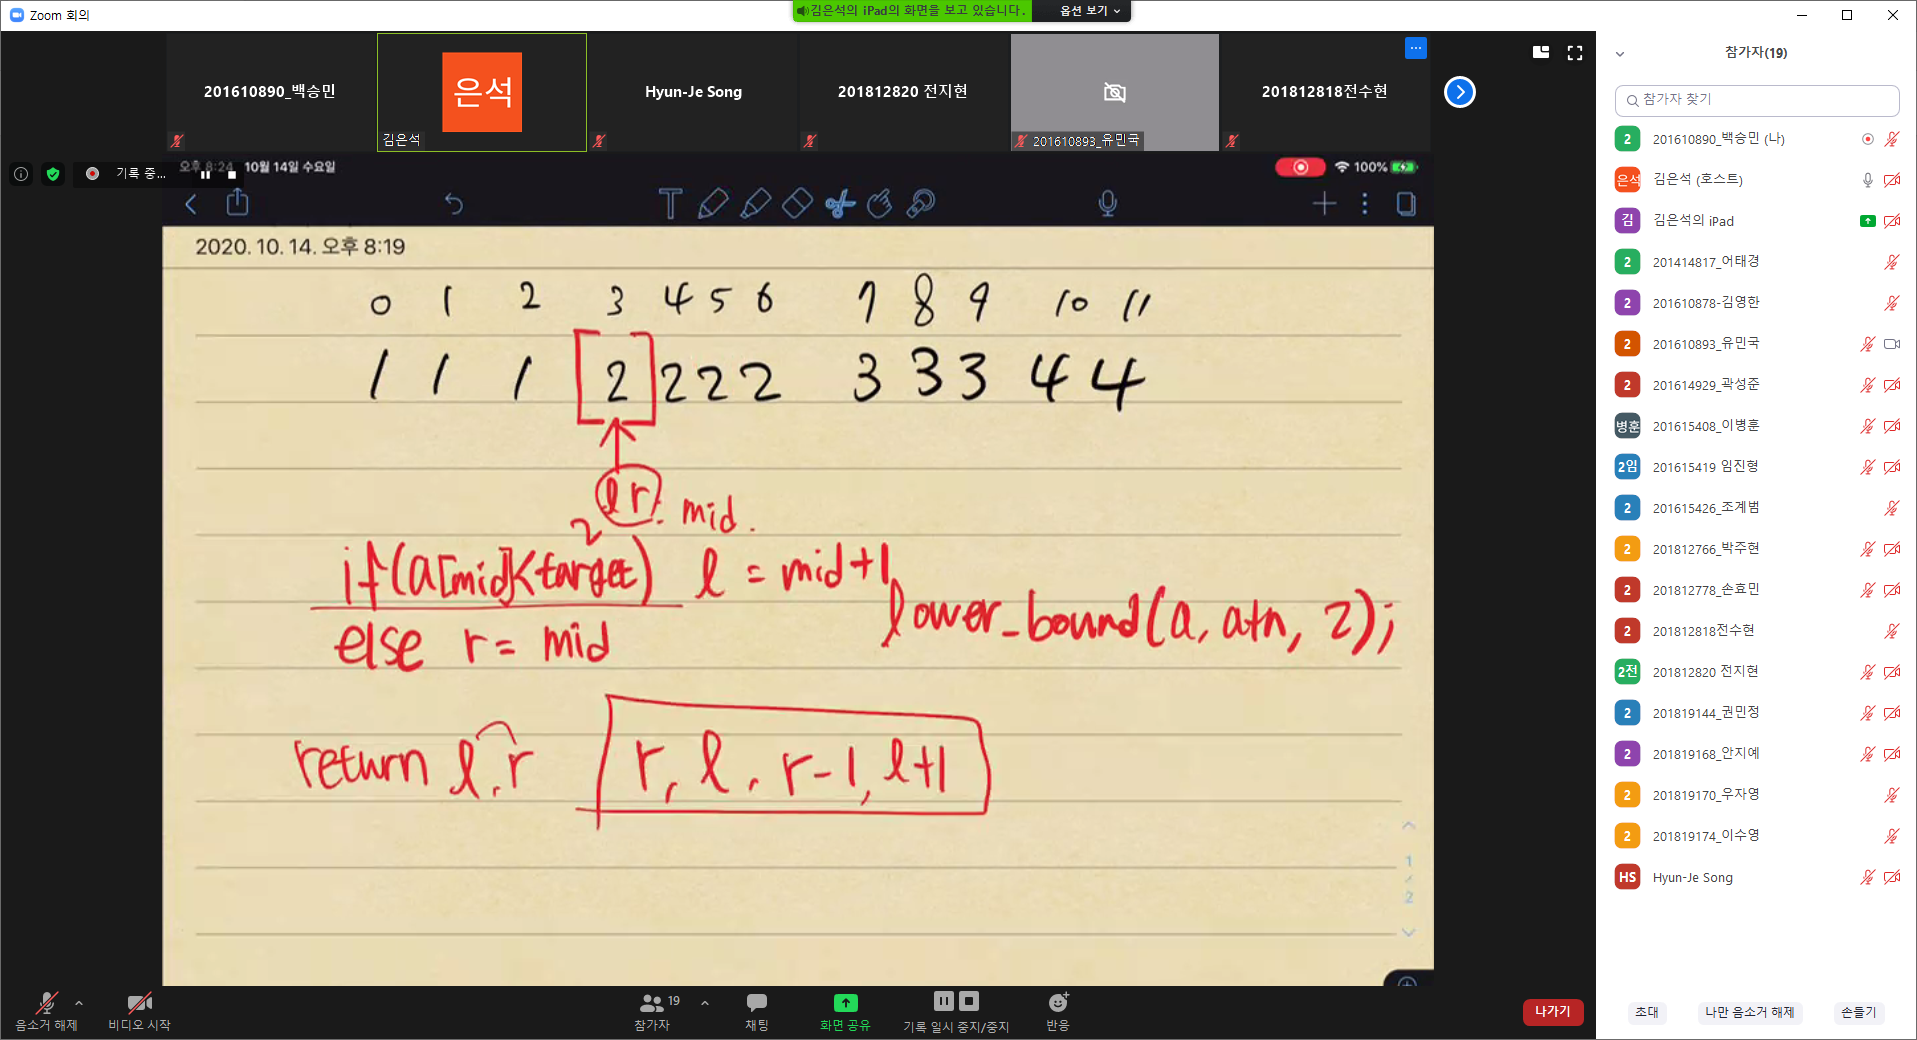 Zoom 회의
김은석의 iPad의 화면을 보고 있습니다.
옵션 보기
201610890_백승민
은석
김은석
Hyun-Je Song
201812820 전지현
201610893_유민국
201812818전수현
기록 중...
오후 8:24 10월 14일 수요일
100%
2020. 10. 14. 오후 8:19
0 1 2 3 4 5 6 7 8 9 10 11
1 1 1 2 2 2 2 3 3 3 4 4
l r. mid.
2
if(a[mid]<target) l = mid+1
else r = mid
lower_bound(a, a+n, 2);
return l, r
r, l, r-1, l+1
1
2
참가자(19)
참가자 찾기
2 201610890_백승민 (나)
은석 김은석 (호스트)
김 김은석의 iPad
2 201414817_어태경
2 201610878-김영한
2 201610893_유민국
2 201614929_곽성준
병훈 201615408_이병훈
2임 201615419 임진형
2 201615426_조계범
2 201812766_박주현
2 201812778_손효민
2 201812818전수현
2전 201812820 전지현
2 201819144_권민정
2 201819168_안지예
2 201819170_우자영
2 201819174_이수영
HS Hyun-Je Song
초대
나만 음소거 해제
손들기
음소거 해제
비디오 시작
19
참가자
채팅
화면 공유
기록 일시 중지/중지
반응
나가기